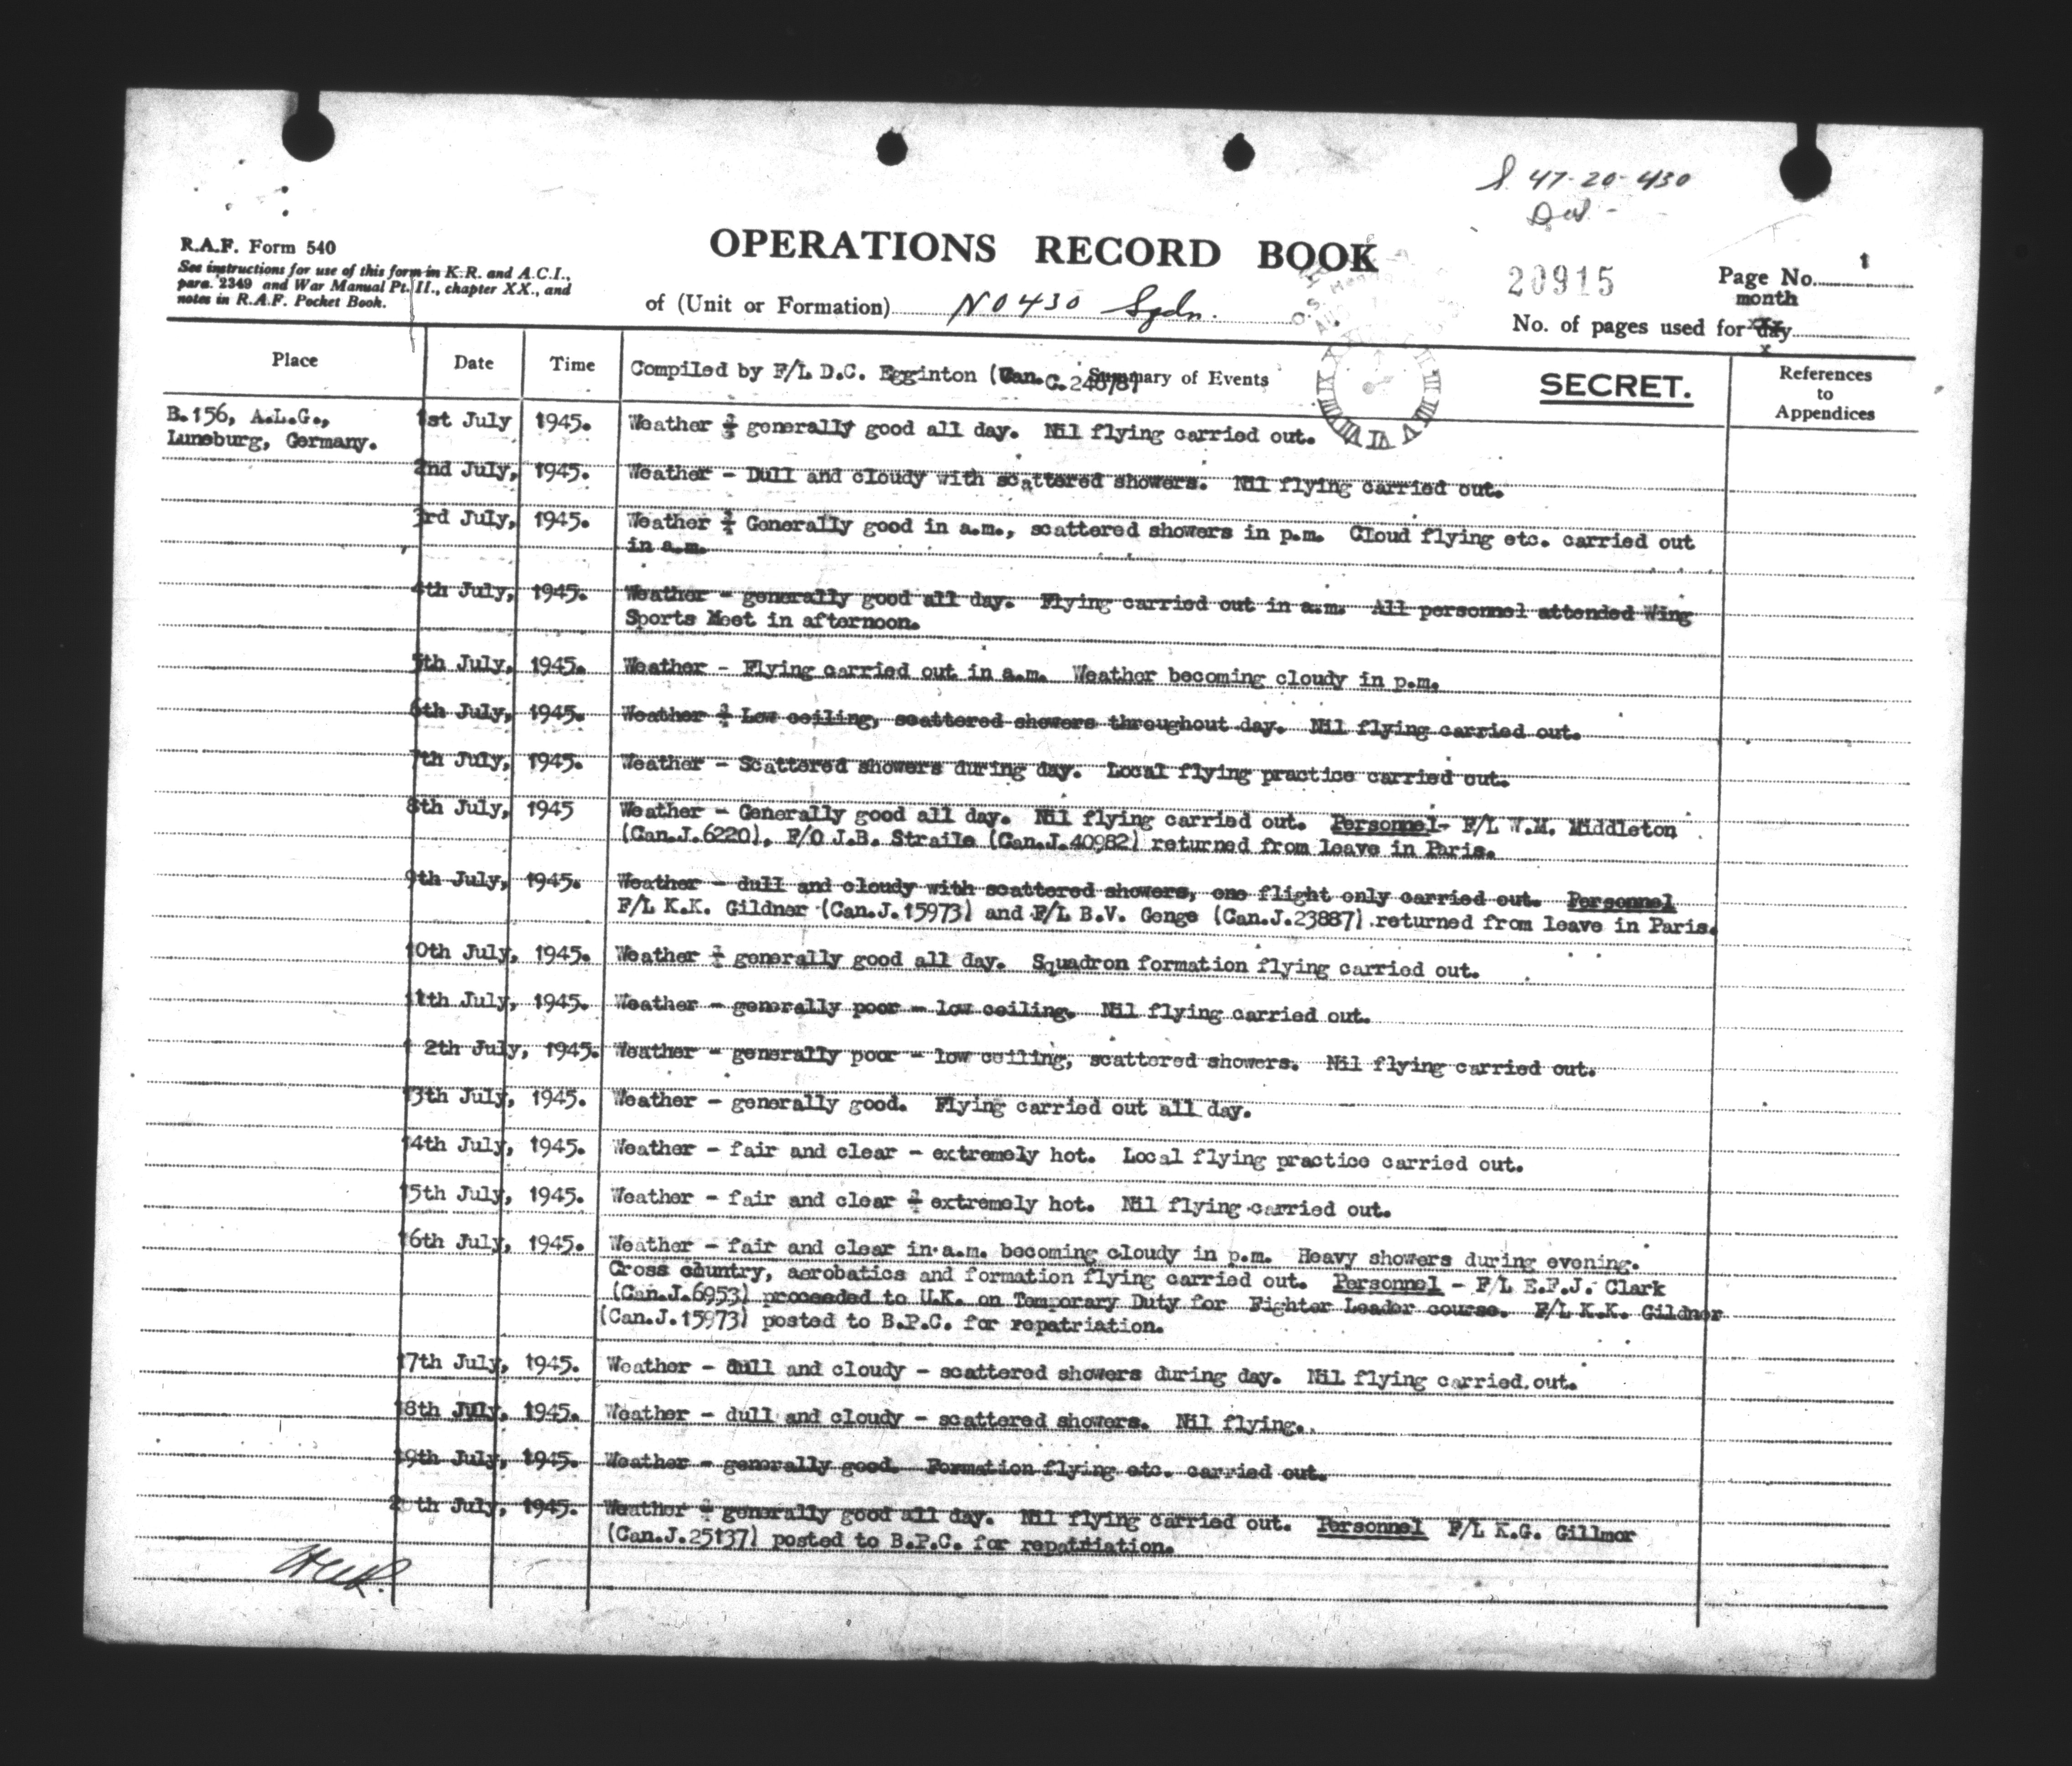 S 47-20-430
R.A.F. Form 540
See instructions for use of this form in K.R. and A.C.I.,
para. 2349 and War Manual Pt. II., chapter XX., and
notes in R.A.F. Pocket Book.
OPERATIONS RECORD BOOK
of (Unit or Formation) No 430 Sqdn.
20915
Page No. 1
month
No. of pages used for day
Place Date Time Compiled by F/L D.C. Egginton (Can. C. Summary of Events SECRET. References
to
Appendices
B.156, A.L.G., 1st July 1945. Weather - generally good all day. Nil flying carried out.
Luneburg, Germany.
2nd July, 1945. Weather - Dull and cloudy with scattered showers. Nil flying carried out.
3rd July, 1945. Weather - Generally good in a.m., scattered showers in p.m. Cloud flying etc. carried out
in a.m.
4th July, 1945. Weather - generally good all day. Flying carried out in a.m. All personnel attended Wing
Sports Meet in afternoon.
5th July, 1945. Weather - Flying carried out in a.m. Weather becoming cloudy in p.m.
6th July, 1945. Weather - Low ceiling, scattered showers throughout day. Nil flying carried out.
7th July, 1945. Weather - Scattered showers during day. Local flying practice carried out.
8th July, 1945 Weather - Generally good all day. Nil flying carried out. Personnel- F/L W.M. Middleton
(Can.J.6220), F/O J.B. Straile (Can.J.40982) returned from leave in Paris.
9th July, 1945. Weather - dull and cloudy with scattered showers, one flight only carried out. Personnel
F/L K.K. Gildner (Can.J.15973) and F/L B.V. Genge (Can.J.23887) returned from leave in Paris.
10th July, 1945. Weather - generally good all day. Squadron formation flying carried out.
11th July, 1945. Weather - generally poor - low ceiling. Nil flying carried out.
12th July, 1945. Weather - generally poor - low ceiling, scattered showers. Nil flying carried out.
13th July, 1945. Weather - generally good. Flying carried out all day.
14th July, 1945. Weather - fair and clear - extremely hot. Local flying practice carried out.
15th July, 1945. Weather - fair and clear - extremely hot. Nil flying carried out.
16th July, 1945. Weather - fair and clear in a.m. becoming cloudy in p.m. Heavy showers during evening.
Cross country, aerobatics and formation flying carried out. Personnel - F/L E.F.J. Clark
(Can.J.6953) proceeded to U.K. on Temporary Duty for Fighter Leader course. F/L K.K. Gildner
(Can.J.15973) posted to B.P.C. for repatriation.
17th July, 1945. Weather - dull and cloudy - scattered showers during day. Nil flying carried out.
18th July, 1945. Weather - dull and cloudy - scattered showers. Nil flying.
19th July, 1945. Weather - generally good. Formation flying etc. carried out.
2 th July, 1945. Weather - generally good all day. Nil flying carried out. Personnel F/L K.G. Gillmor
(Can.J.25137) posted to B.P.C. for repatriation.